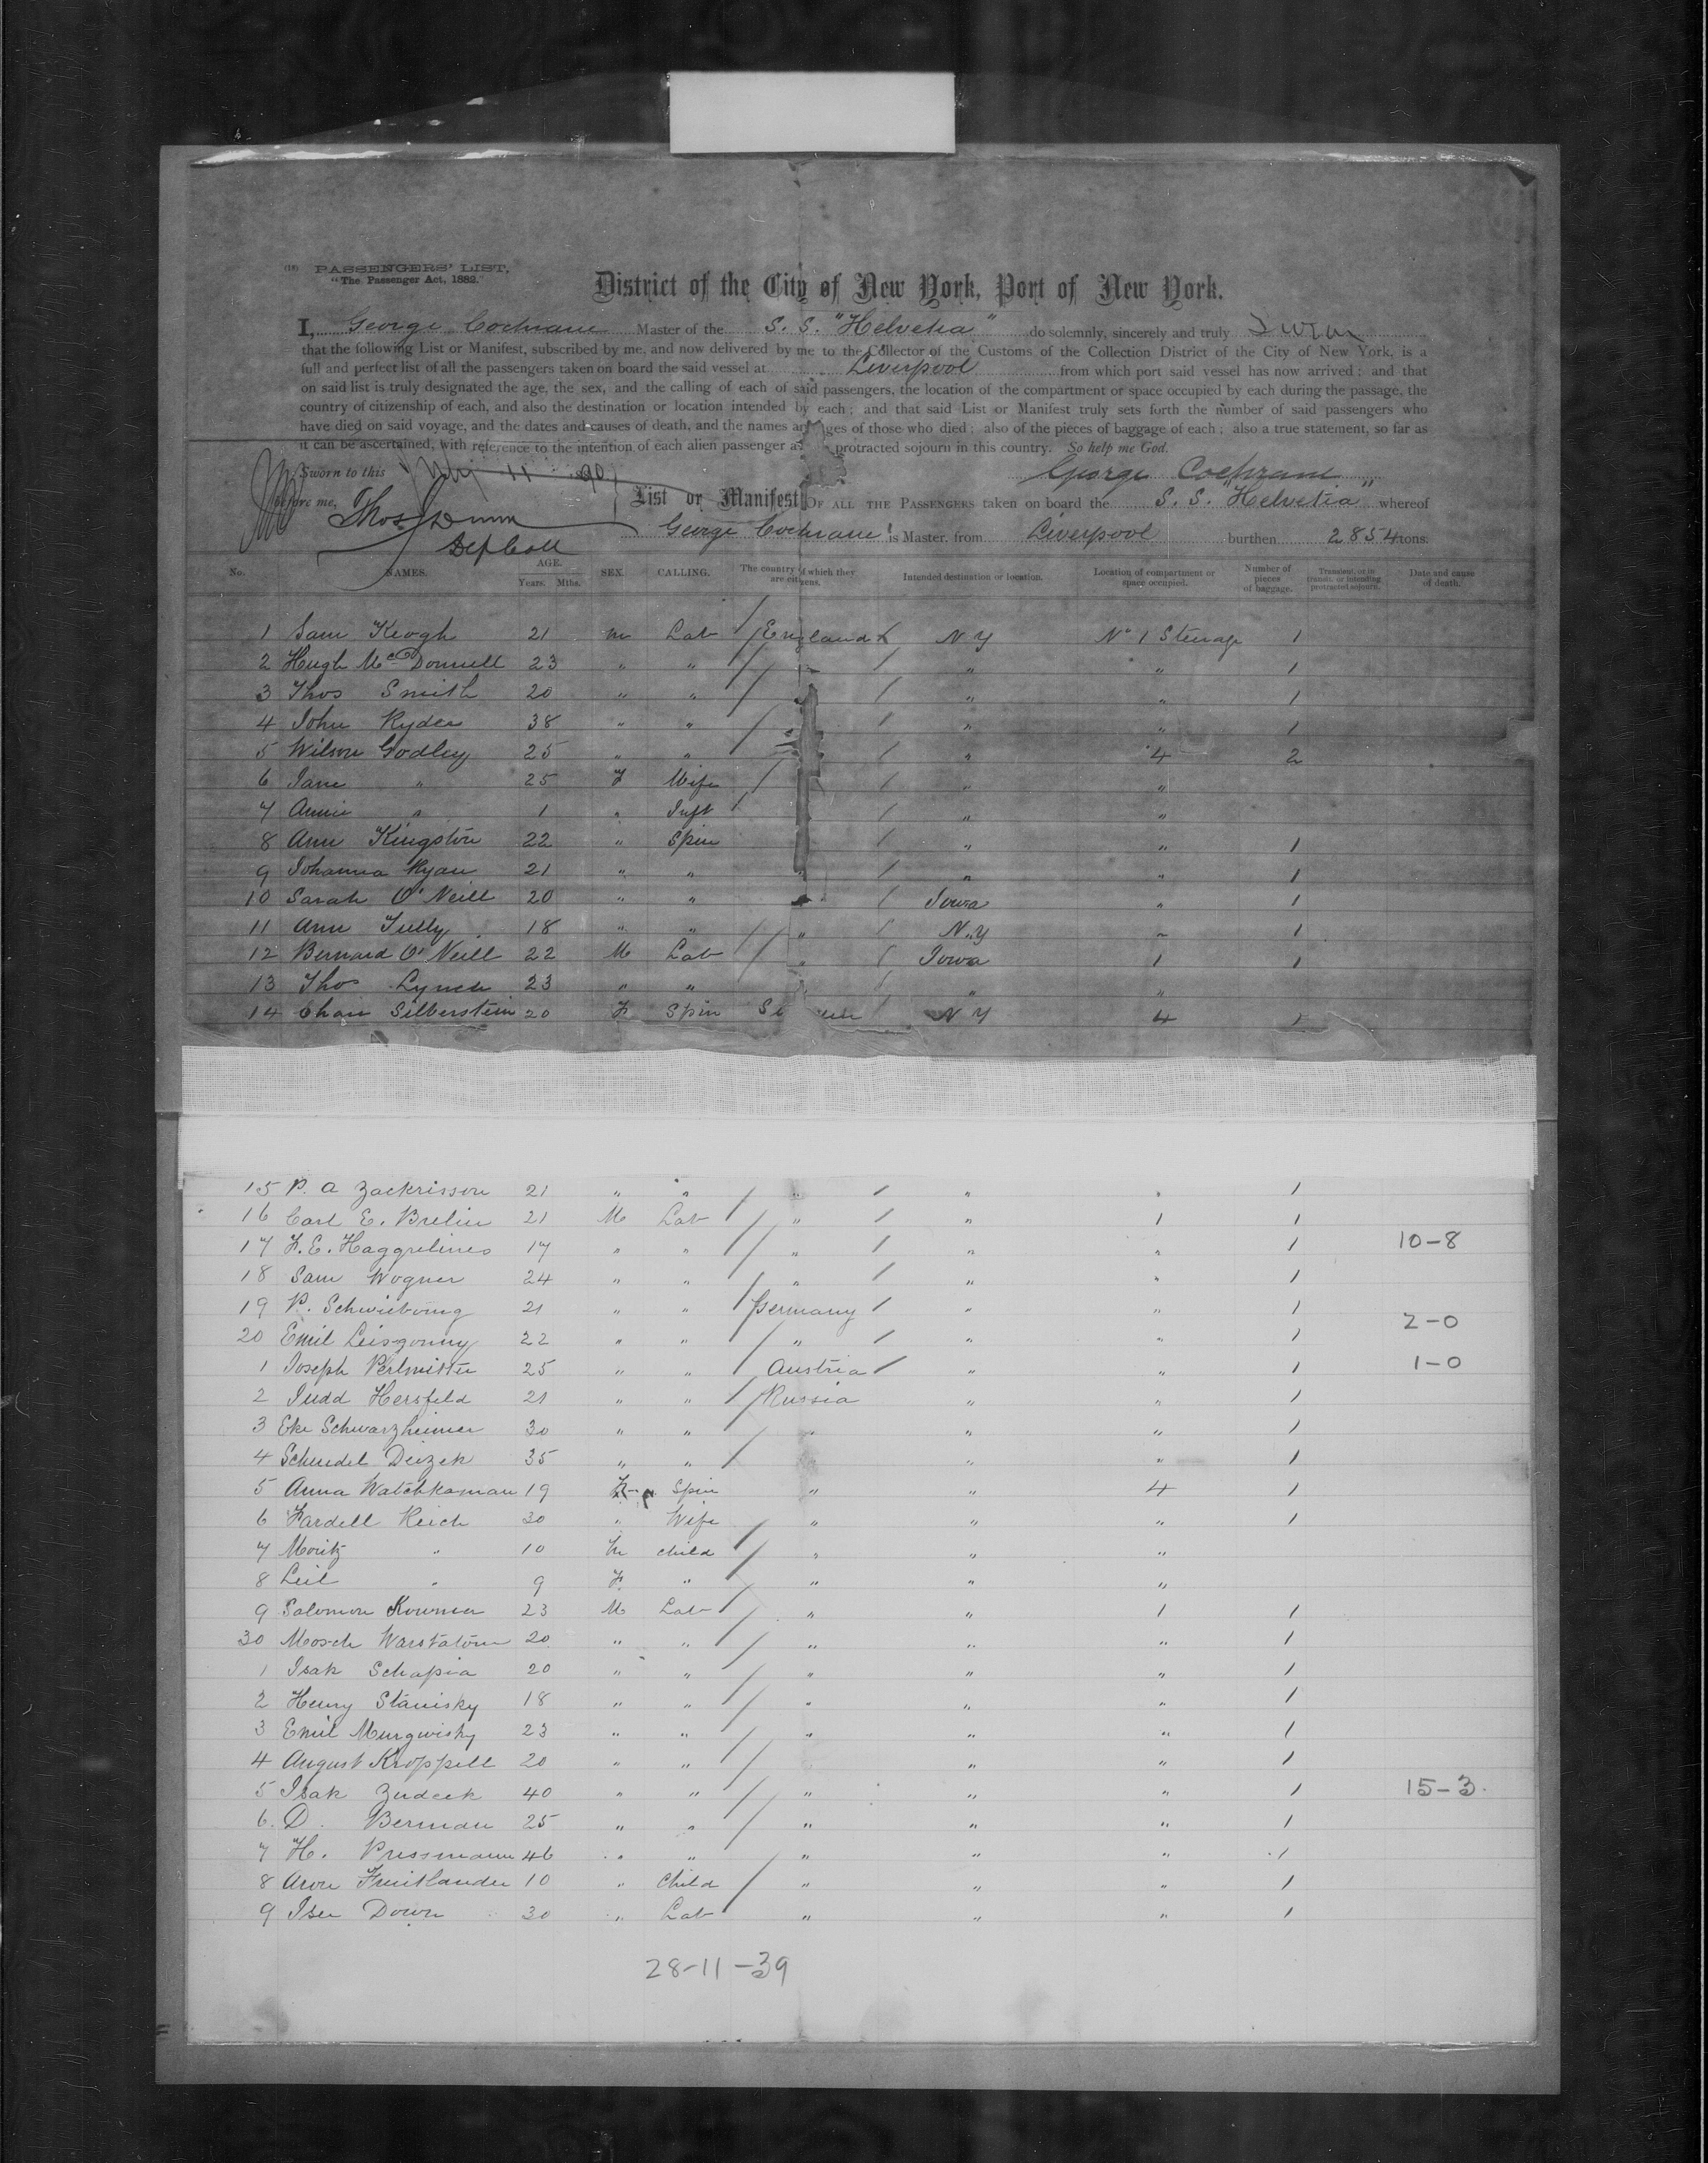 (18) PASSENGERS' LIST.
"The Passenger Act, 1882."
District of the City of New York, Port of New York.
I, George Cochrane Master of the S. S. "Helvetia" do solemnly, sincerely and truly Swear
that the following List or Manifest, subscribed by me, and now delivered by me to the Collector of the Customs of the Collection District of the City of New York, is a
full and perfect list of all the passengers taken on board the said vessel at Liverpool from which port said vessel has now arrived; and that
on said list is truly designated the age, the sex, and the calling of each of said passengers, the location of the compartment or space occupied by each during the passage, the
country of citizenship of each, and also the destination or location intended by each; and that said List or Manifest truly sets forth the number of said passengers who
have died on said voyage, and the dates and causes of death, and the names and ages of those who died; also of the pieces of baggage of each; also a true statement, so far as
it can be ascertained, with reference to the intention of each alien passenger a protracted sojourn in this country. So help me God.
Sworn to this 11 1890 George Cochrane
before me, Thos Dunn
Dep Coll
List or Manifest OF ALL THE PASSENGERS taken on board the S. S. "Helvetia" whereof
George Cochrane is Master, from Liverpool burthen 2854 tons.
No. NAMES. AGE. Years. Mths. SEX. CALLING. The country of which they are citizens. Intended destination or location. Location of compartment or space occupied. Number of pieces of baggage. Transient, or in transit, or intending protracted sojourn. Date and cause of death.
1 Sam Keogh 21 m Lab England N Y No 1 Steerage 1
2 Hugh McDonnell 23 " " " " " 1
3 Thos Smith 20 " " " " " 1
4 John Ryder 38 " " " " 1
5 Wilson Godley 25 " " " " 4 2
6 Jane " 25 F Wife " "
7 Annie " 1 " Inft " "
8 Ann Kingston 22 " Spin " " 1
9 Johanna Ryan 21 " " " " " 1
10 Sarah O'Neill 20 " " Iowa " 1
11 Ann Tully 18 " " " N.Y " 1
12 Bernard O'Neill 22 M Lab " Iowa 1 1
13 Thos Lynch 23 " " " "
14 Chan Silberstein 20 F Spin N Y 4 1
15 P. A Zackrisson 21 " " " " " 1
16 Carl E. Brelin 21 M Lab " " 1 1
17 F. E. Haggrelines 17 " " " " " 1 10-8
18 Sam Wogner 24 " " " " " 1
19 P. 21 " " Germany " " 1
2-0
20 Emil 22 " " " " " 1
1 Joseph Perlmitter 25 " " Austria " " 1 1-0
2 Judd Hersfeld 21 " " Russia " " 1
3 Eke Schwarzheimer 30 " " " " " 1
4 Schudel Deizek 35 " " " " 1
5 Anna Watchkaman 19 F Spin " " 4 1
6 Fardell Reich 30 " Wife " " " 1
7 Moritz " 10 m child " " "
8 Leil " 9 F " " " "
9 Salomon 23 M Lab " " 1 1
30 Mosch 20 " " " " " 1
1 Isak Schapia 20 " " " " " 1
2 Henry Stanisky 18 " " " " " 1
3 Emil Murgwisky 23 " " " " " 1
4 August Kroppell 20 " " " " 1
5 Isak Zudeck 40 " " " " " 1 15-3.
6. D. Berman 25 " " " " " 1
7 H. Pressmann 46 " " " " " 1
8 Aron Fruitlander 10 " Child " " " 1
9 Iser Down 30 " Lab " " " 1
28-11-39